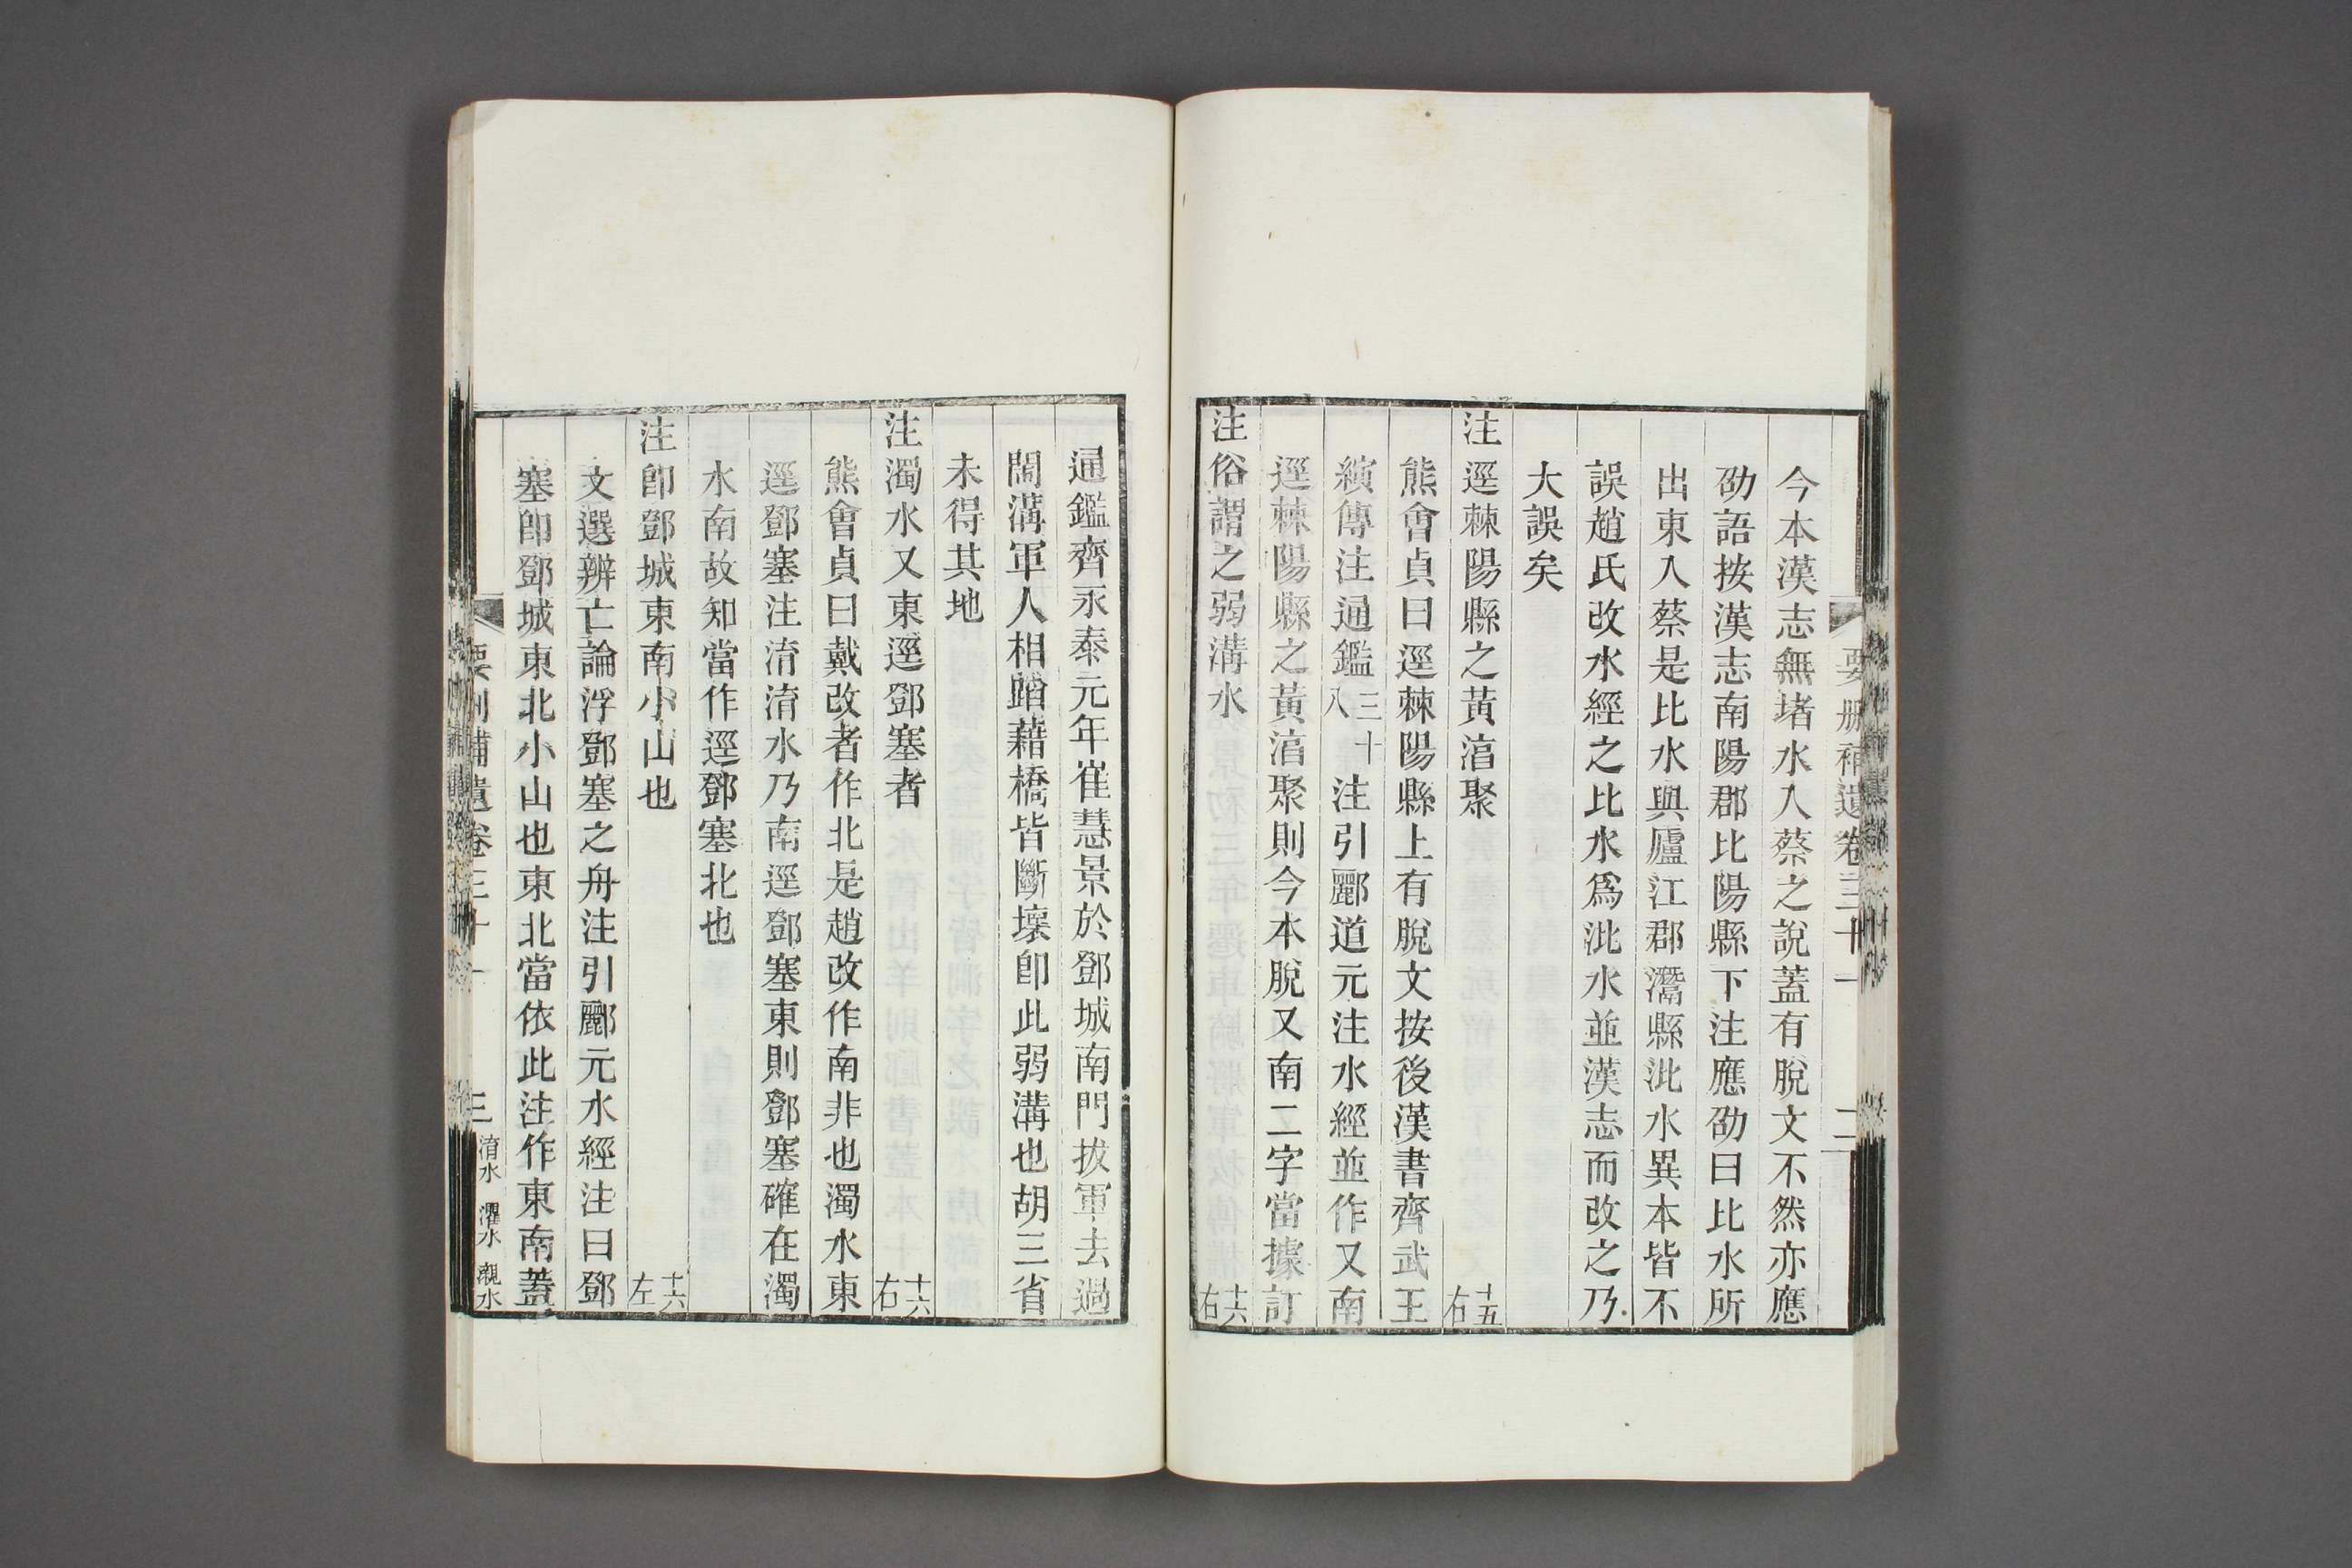 要刪補遺卷三十一 二
今本漢志無堵水入蔡之說蓋有脫文不然亦應
劭語按漢志南陽郡比陽縣下注應劭曰比水所
出東入蔡是比水與廬江郡灊縣沘水異本皆不
誤趙氏改水經之比水爲沘水並漢志而改之乃
大誤矣
注逕棘陽縣之黃淯聚 十五右
熊會貞曰逕棘陽縣上有脫文按後漢書齊武王
縯傳注通鑑三十八注引酈道元注水經並作又南
逕棘陽縣之黃淯聚則今本脫又南二字當據訂
注俗謂之弱溝水 十六右
通鑑齊永泰元年崔慧景於鄧城南門拔軍去過
鬧溝軍人相蹈藉橋皆斷壞卽此弱溝也胡三省
未得其地
注濁水又東逕鄧塞者 十六右
熊會貞曰戴改者作北是趙改作南非也濁水東
逕鄧塞注淯淯水乃南逕鄧塞東則鄧塞確在濁
水南故知當作逕鄧塞北也
注卽鄧城東南小山也 十六左
文選辨亡論浮鄧塞之舟注引酈元水經注曰鄧
塞卽鄧城東北小山也東北當依此注作東南蓋
要刪補遺卷三十一 三 淯水 灈水 瀙水